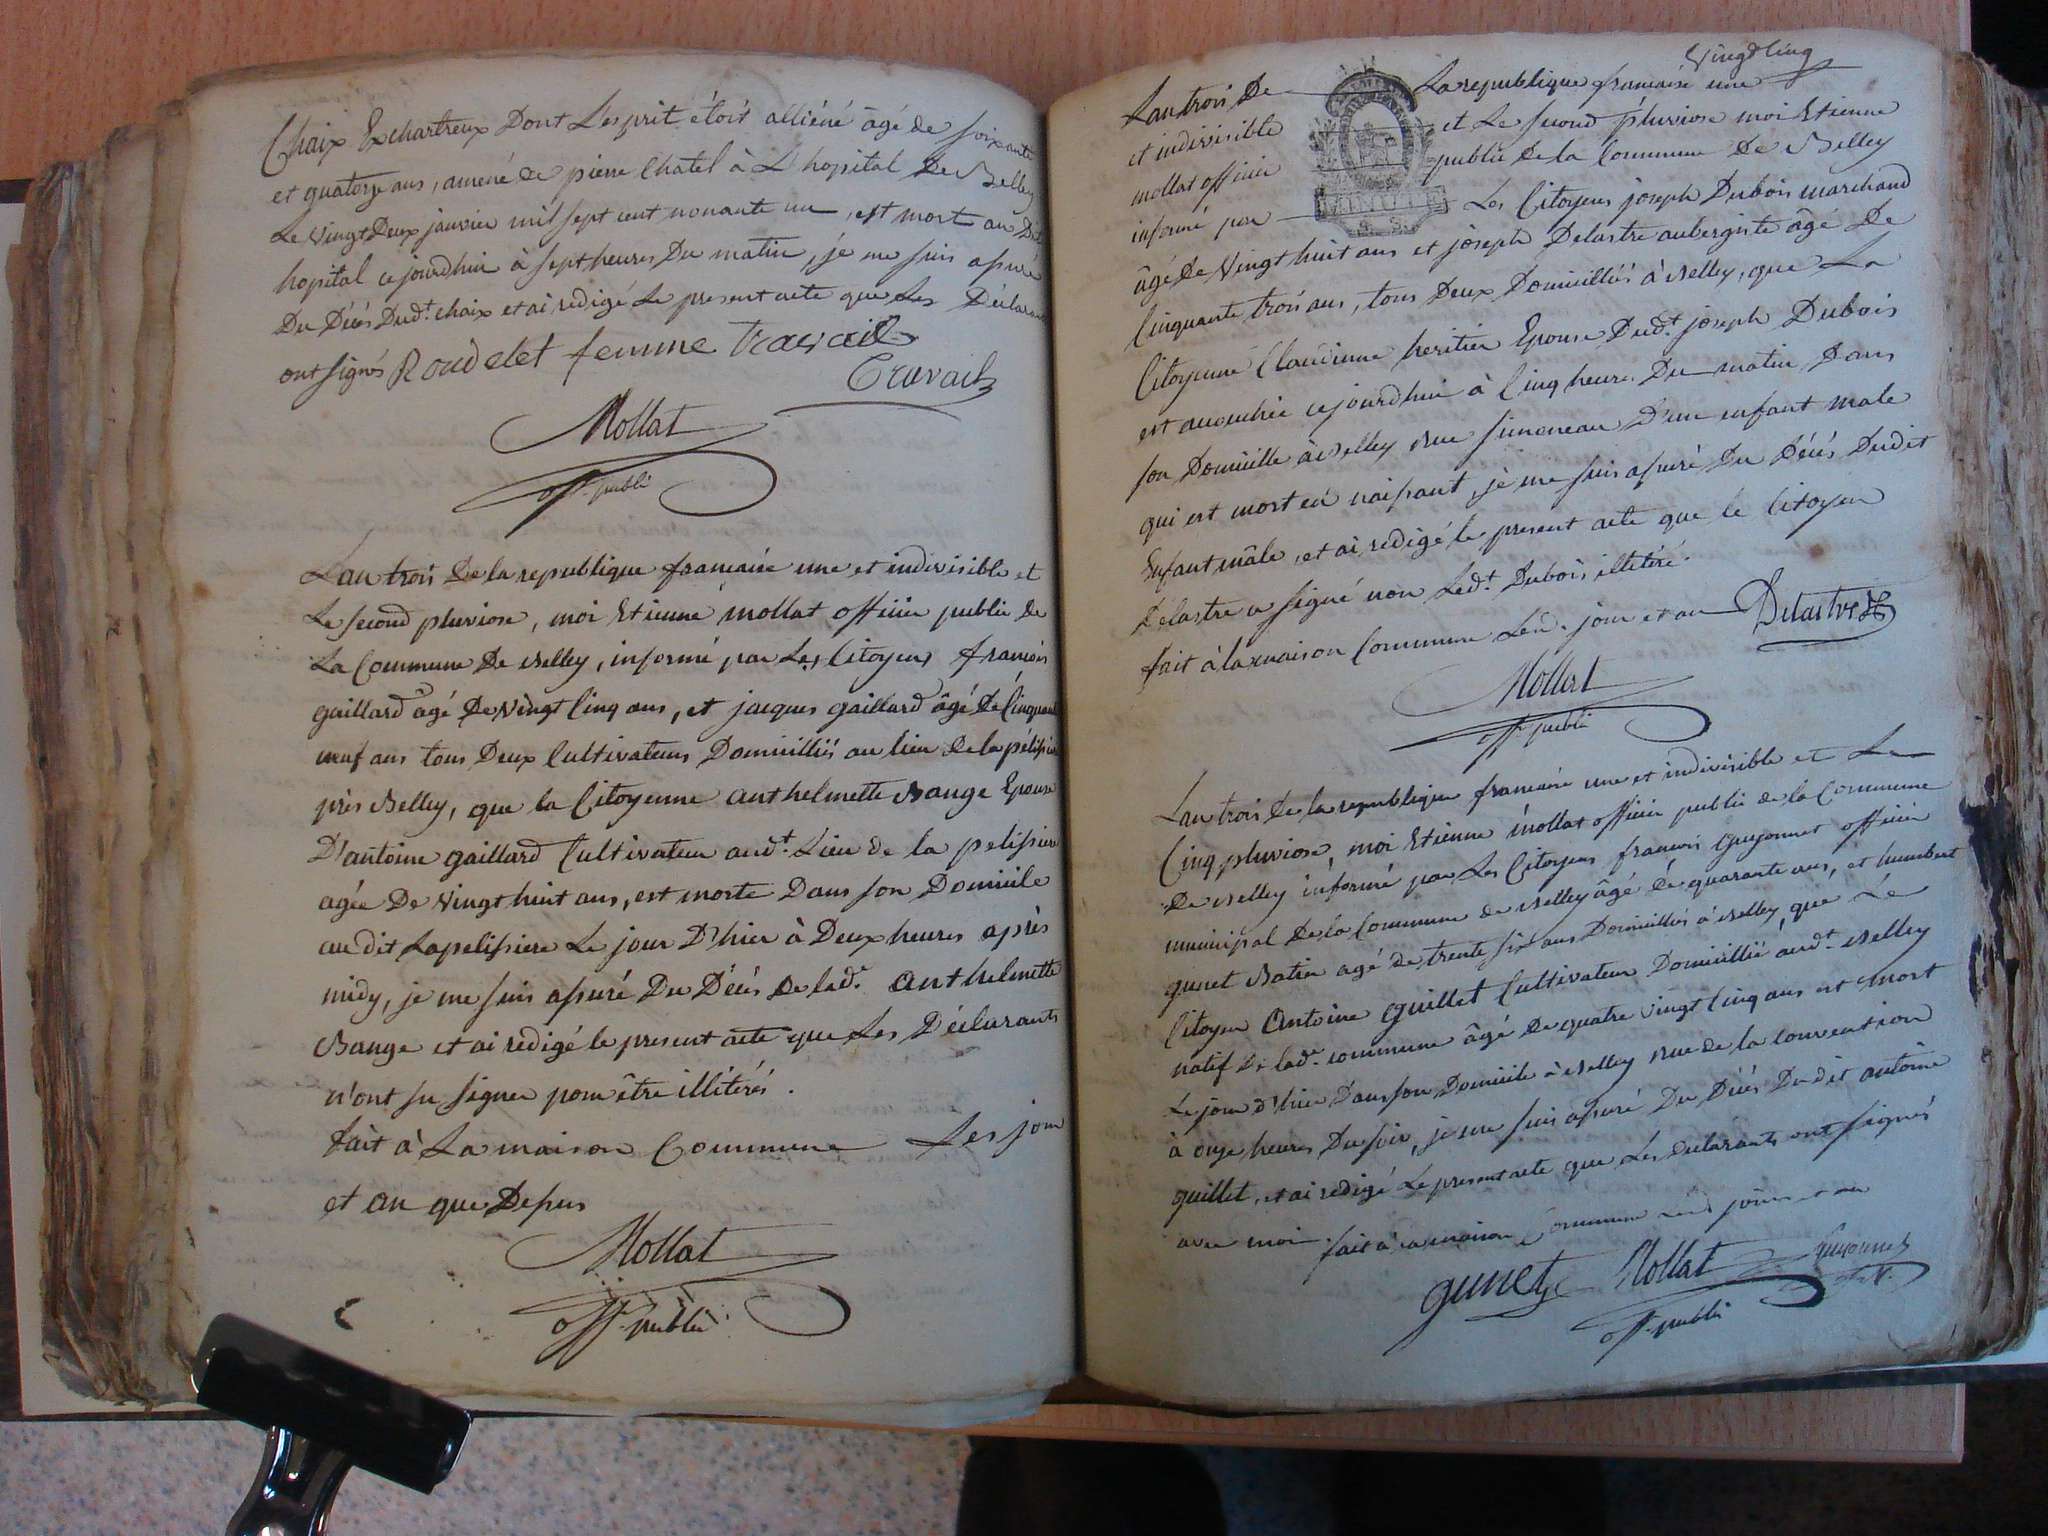 Chaix Exchartreux Dont L'esprit étoit alliéné âgé de soixante
et quatorze ans, amené de pierre Chatel à L'hopital De Belley
Le vingt Deux janvier mil sept cent nonante un, est mort au Dit
hopital cejourdhui à sept heures Du matin, je me suis assuré
Du Décés Dud.t chaix et ai redigé Le present acte que Les Déclarants
ont signés Roudelet femme Travail
Travail
Mollat
off. public
L'an trois De la republique francaise une et indivisible et
Le second pluviose, moi Etienne mollat officier public de
La Commune De Belley, informé par Les Citoyens francois
gaillard âgé De vingt cinq ans, et jacques gaillard âgé De Cinquante
neuf ans tous Deux Cultivateurs Domiciliés au lieu De la pélissiere
près Belley, que la Citoyenne anthelmette Bange Epouse
D'antoine gaillard Cultivateur aud.t Lieu de la pelissiere
agée De vingt huit ans, est morte Dans son Domicile
au dit Lapelissiere Le jour D'hier à Deux heures après
midy, je me suis assuré Du Décés De lad.e anthelmette
Bange et ai redigé le present acte que Les Déclarants
n'ont su signer pour être illitérés.
fait à La maison Commune Les jour
et an que Dessus
Mollat
off. public
Vingt Cinq
L'an trois De La republique francaise une
et indivisible et Le second pluviose moi Etienne
mollat officier public De la Commune De Belley
informé par Les Citoyens joseph Dubois marchand
âgé De vingt huit ans et joseph Delastre aubergiste âgé De
Cinquante trois ans, tous Deux Domiciliés à Belley, que La
Citoyenne Claudinne heritier Epouse Dud.t joseph Dubois
est accouchée cejourdhui à Cinq heures Du matin Dans
son Domicille à Belley rue simoneau D'un enfant male
qui est mort en naissant, je me suis assuré Du Décés Dudit
Enfant mâle, et ai redigé le present acte que le Citoyen
Delastre a signé non Led.t Dubois illitéré.
fait à la maison Commune Led. jour et an Delastre
Mollat
off. public
L'an trois De la republique francaise une et indivisible et Le
Cinq pluviose, moi Etienne mollat officier public de la Commune
De Belley informé par Les Citoyens francois guyonnet officier
municipal De la Commune de Belley âgé de quarante ans, et humbert
gunet Batier agé de trente six ans Domiciliés à Belley, que Le
Citoyen Antoine Guillet Cultivateur Domicillié aud.t Belley
natif De lad.e commune âgé De quatre vingt Cinq ans est mort
Le jour d'hier Dans son Domicile à Belley rue de la Convention
à onze heures Du soir, je me suis assuré Du Décés Dudit antoine
guillet, et ai redigé Le present acte que Les Declarants ont signés
avec moi. fait à la maison Commune Led jour et an
gunet Mollat guyonnet
off. public